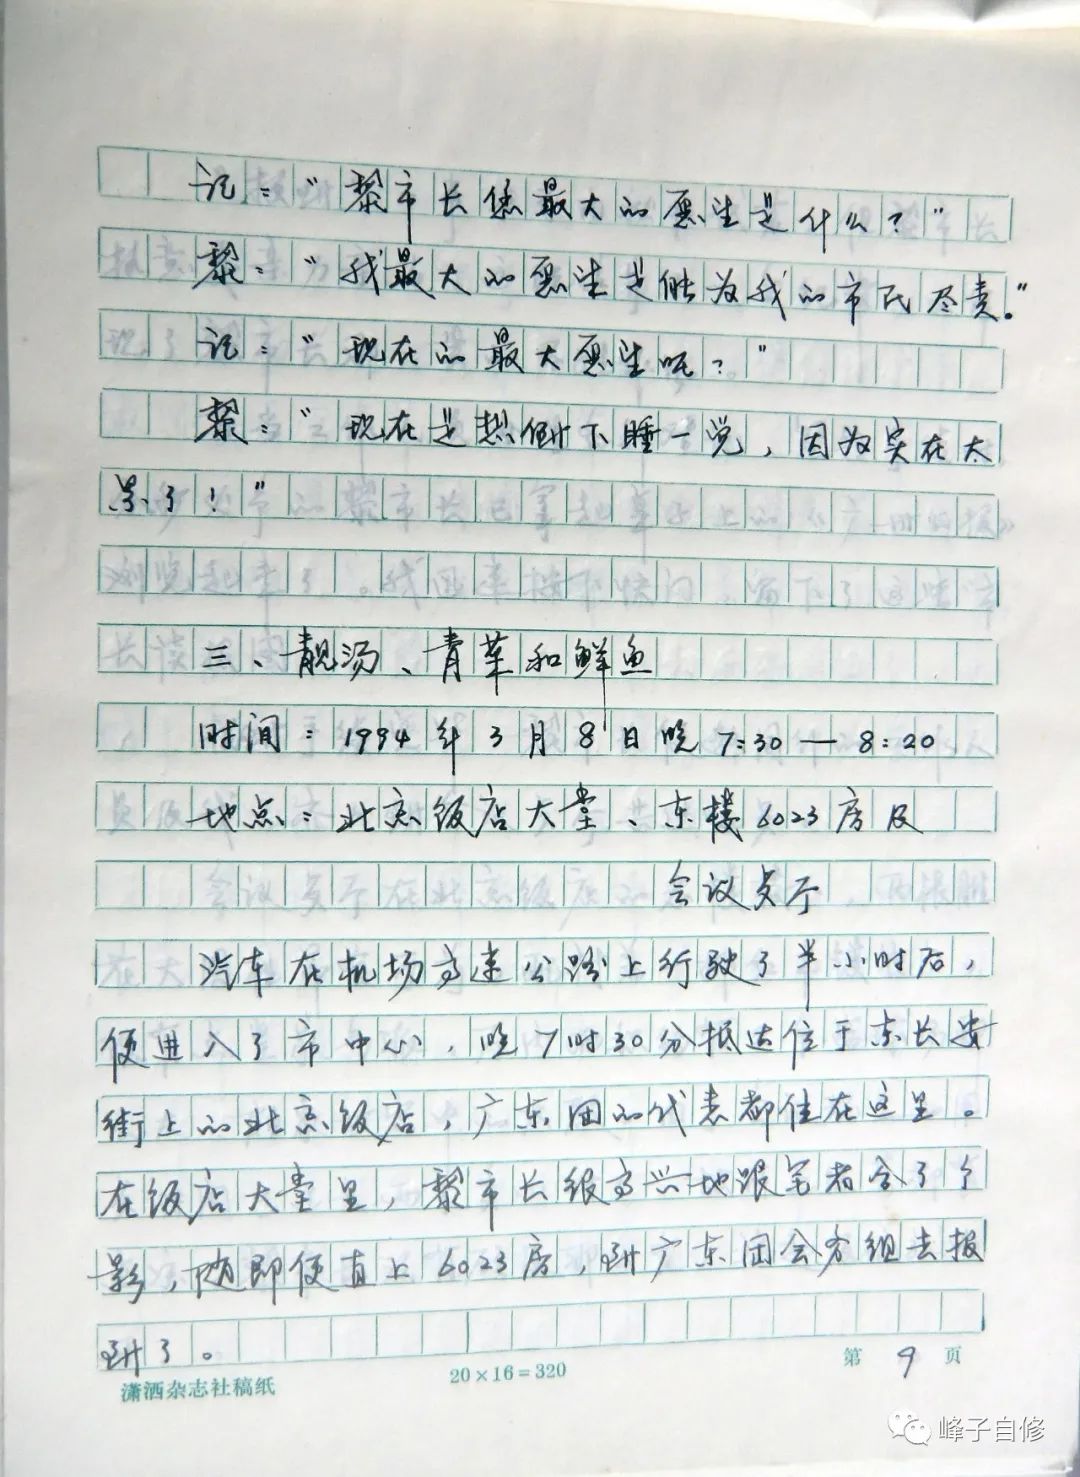 记："黎市长您最大的愿望是什么？"
黎："我最大的愿望是能为我的市民尽责。"
记："现在的最大愿望呢？"
黎："现在是想倒下睡一觉，因为实在太
累了！"
三、靓汤、青菜和鲜鱼
时间：1994年3月8日晚7:30—8:20
地点：北京饭店大堂、东楼6023房及
会议餐厅
汽车在机场高速公路上行驶了半小时后，
便进入了市中心，晚7时30分抵达位于东长安
街上的北京饭店，广东团的代表都住在这里。
在饭店大堂里，黎市长很高兴地跟笔者合了个
影，随即便直上6023房，到广东团会务组去报
到了。
潇洒杂志社稿纸
20×16=320
第9页
峰子自修